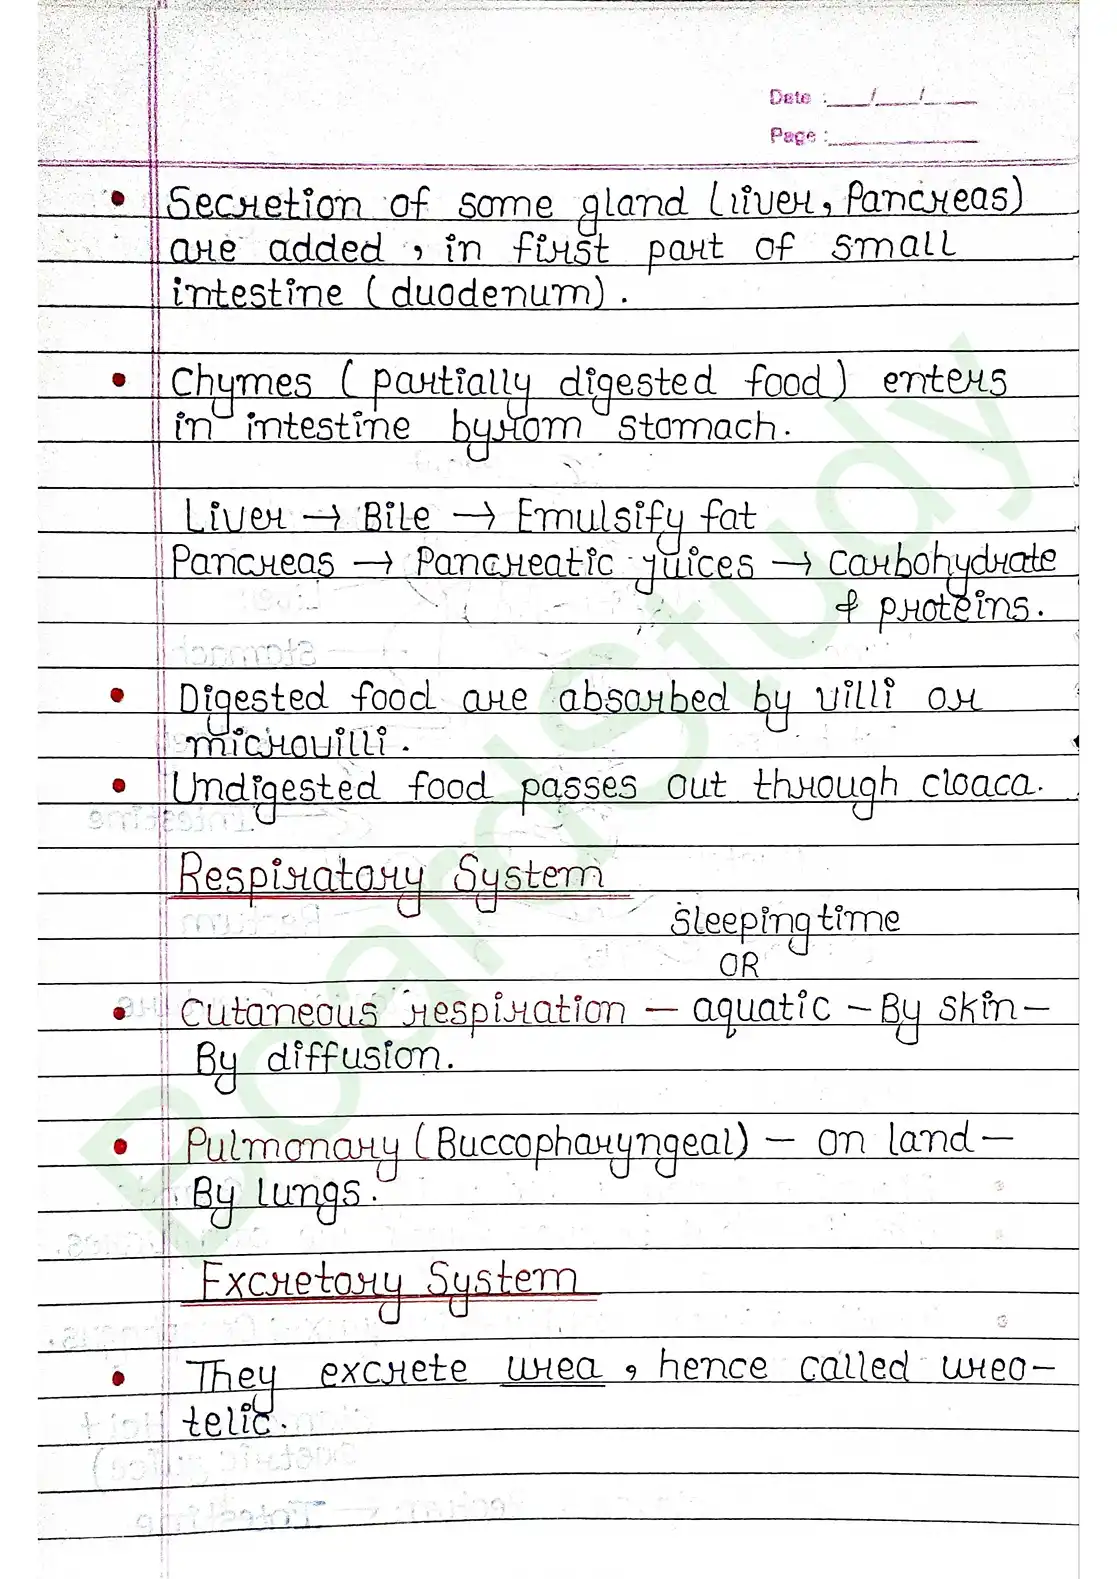 Date : __/__/__
Page : ______
• Secretion of some gland (liver, Pancreas)
are added, in first part of small
intestine (duodenum).
• Chymes (partially digested food) enters
in intestine byrom stomach.
Liver → Bile → Emulsify fat
Pancreas → Pancreatic juices → Carbohydrate
& proteins.
• Digested food are absorbed by villi or
microvilli.
• Undigested food passes out through cloaca.
Respiratory System
Sleeping time
OR
• Cutaneous respiration — aquatic – By skin –
By diffusion.
• Pulmonary (Buccopharyngeal) – on land –
By lungs.
Excretory System
• They excrete urea, hence called ureo-
telic.
BoardStudy